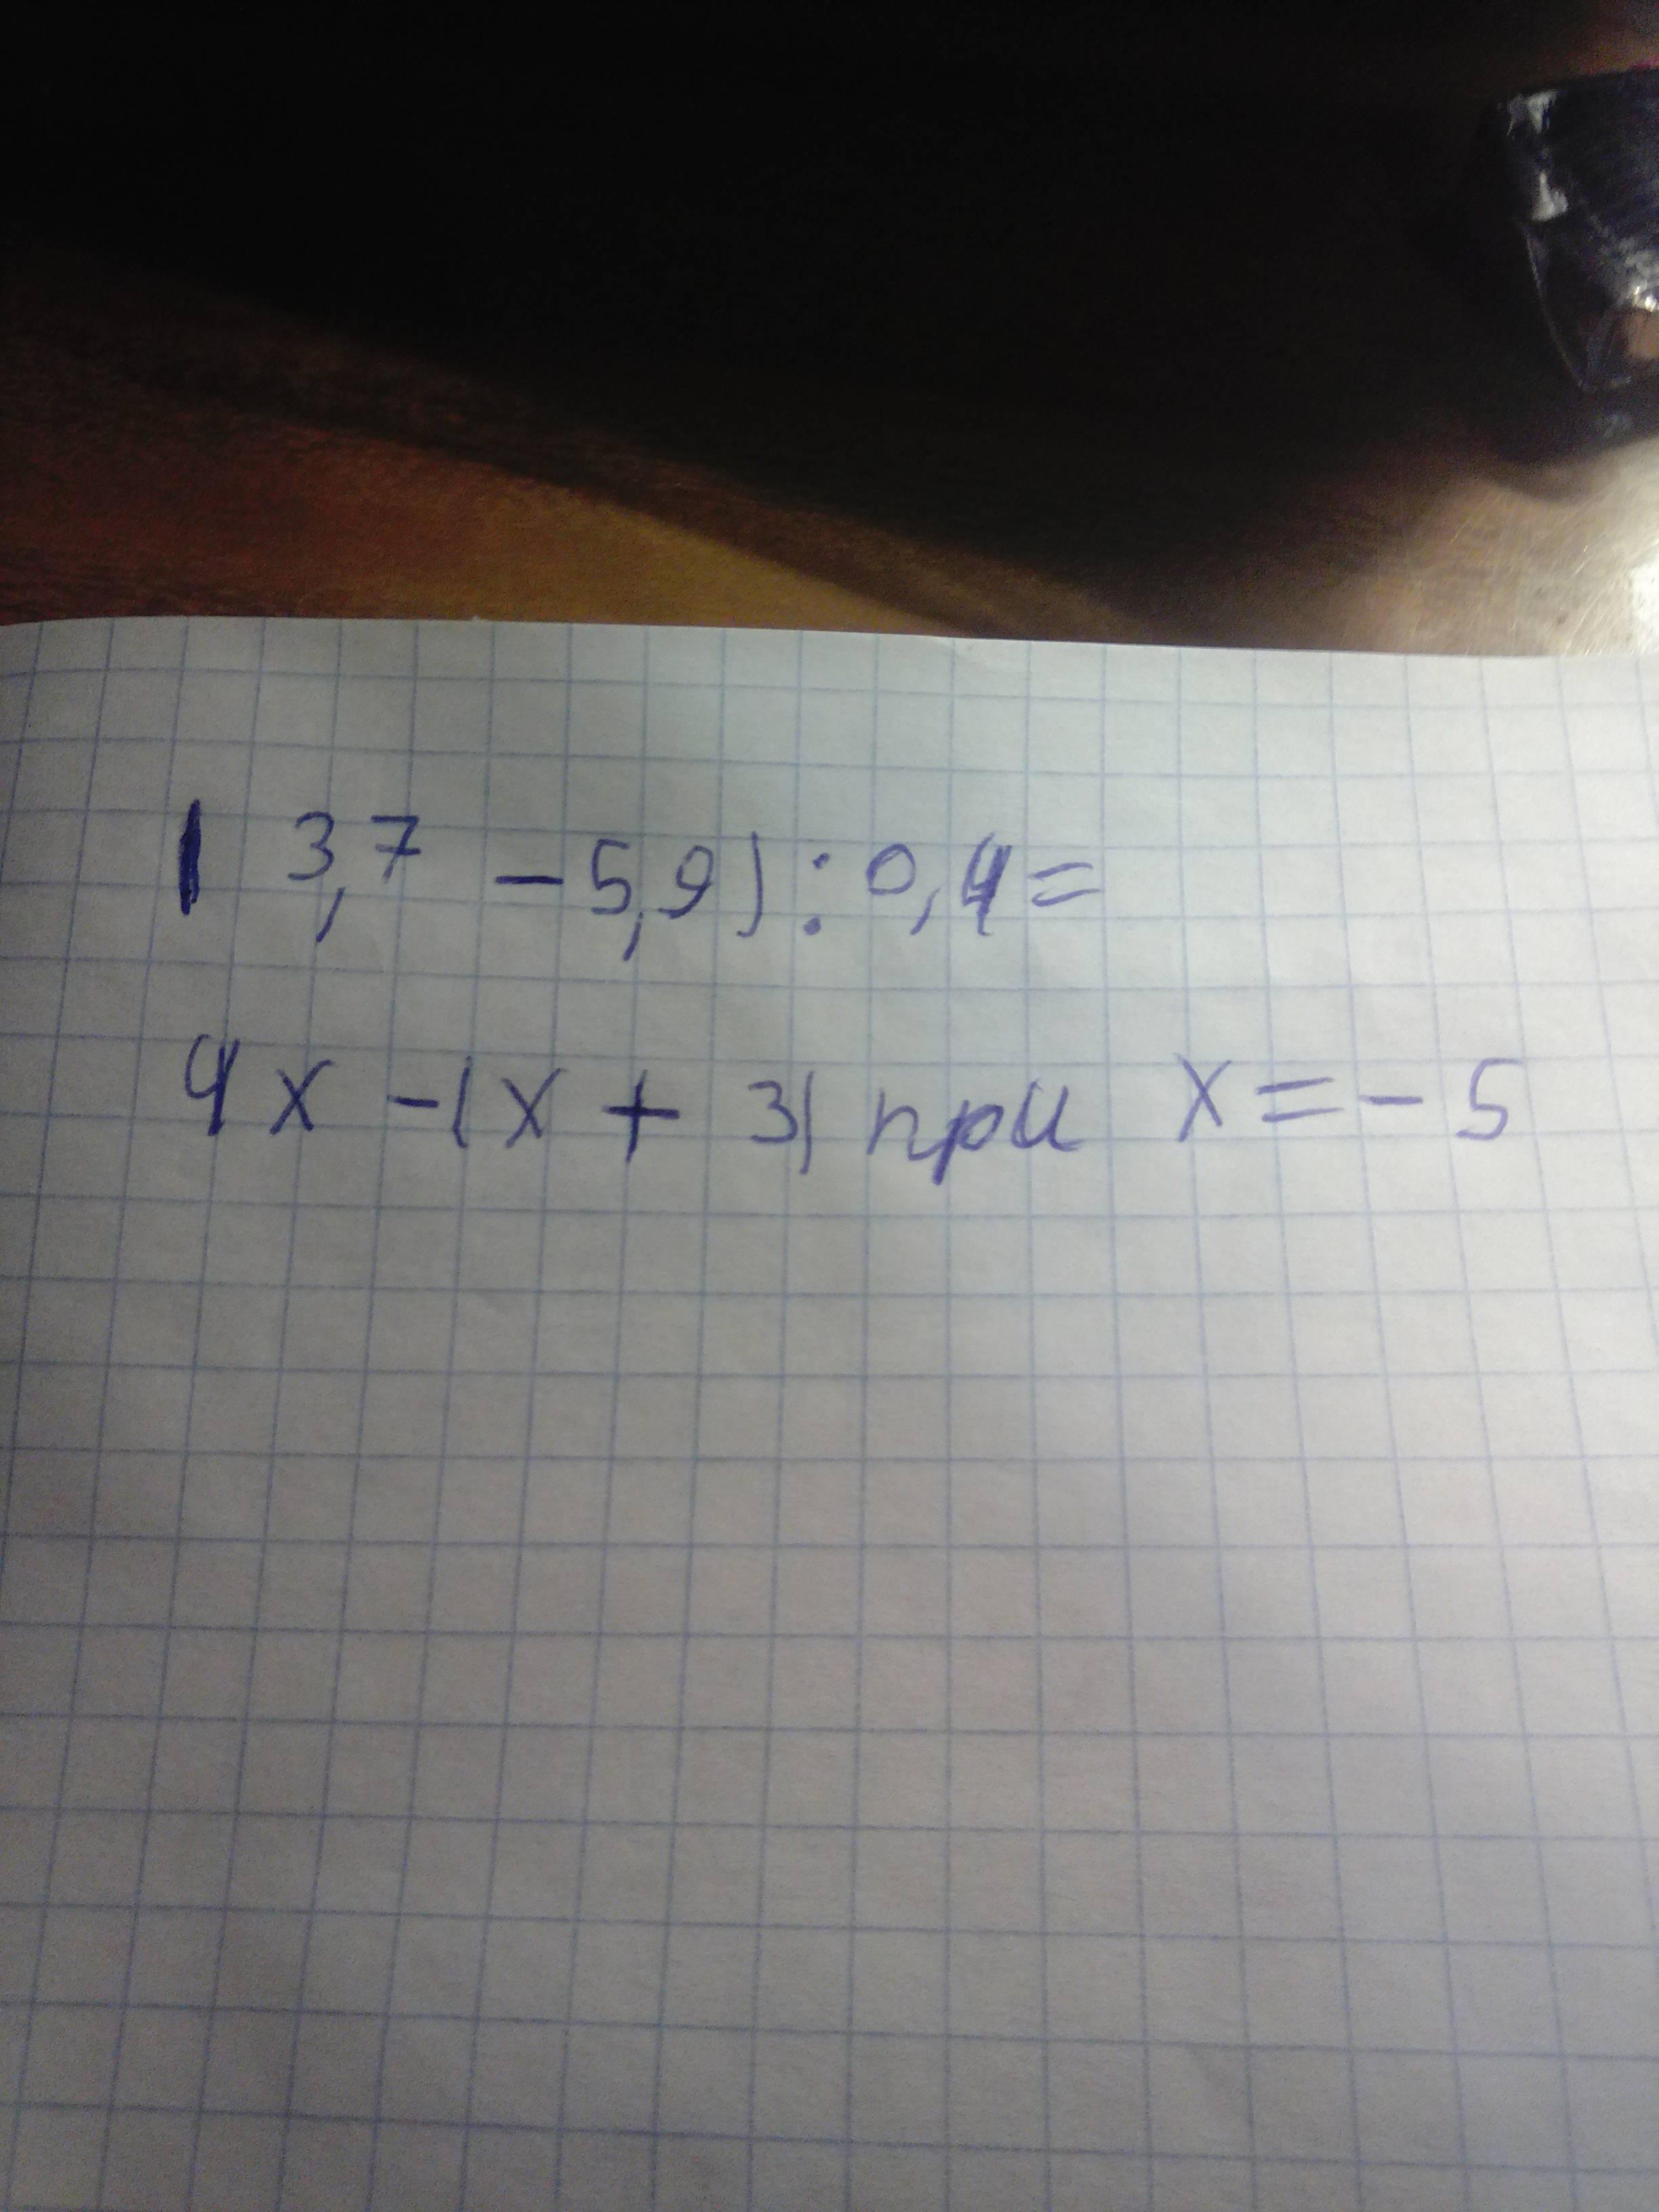 ( 3,7 - 5,9) : 0,4 =
4x - (x + 3) при x = - 5